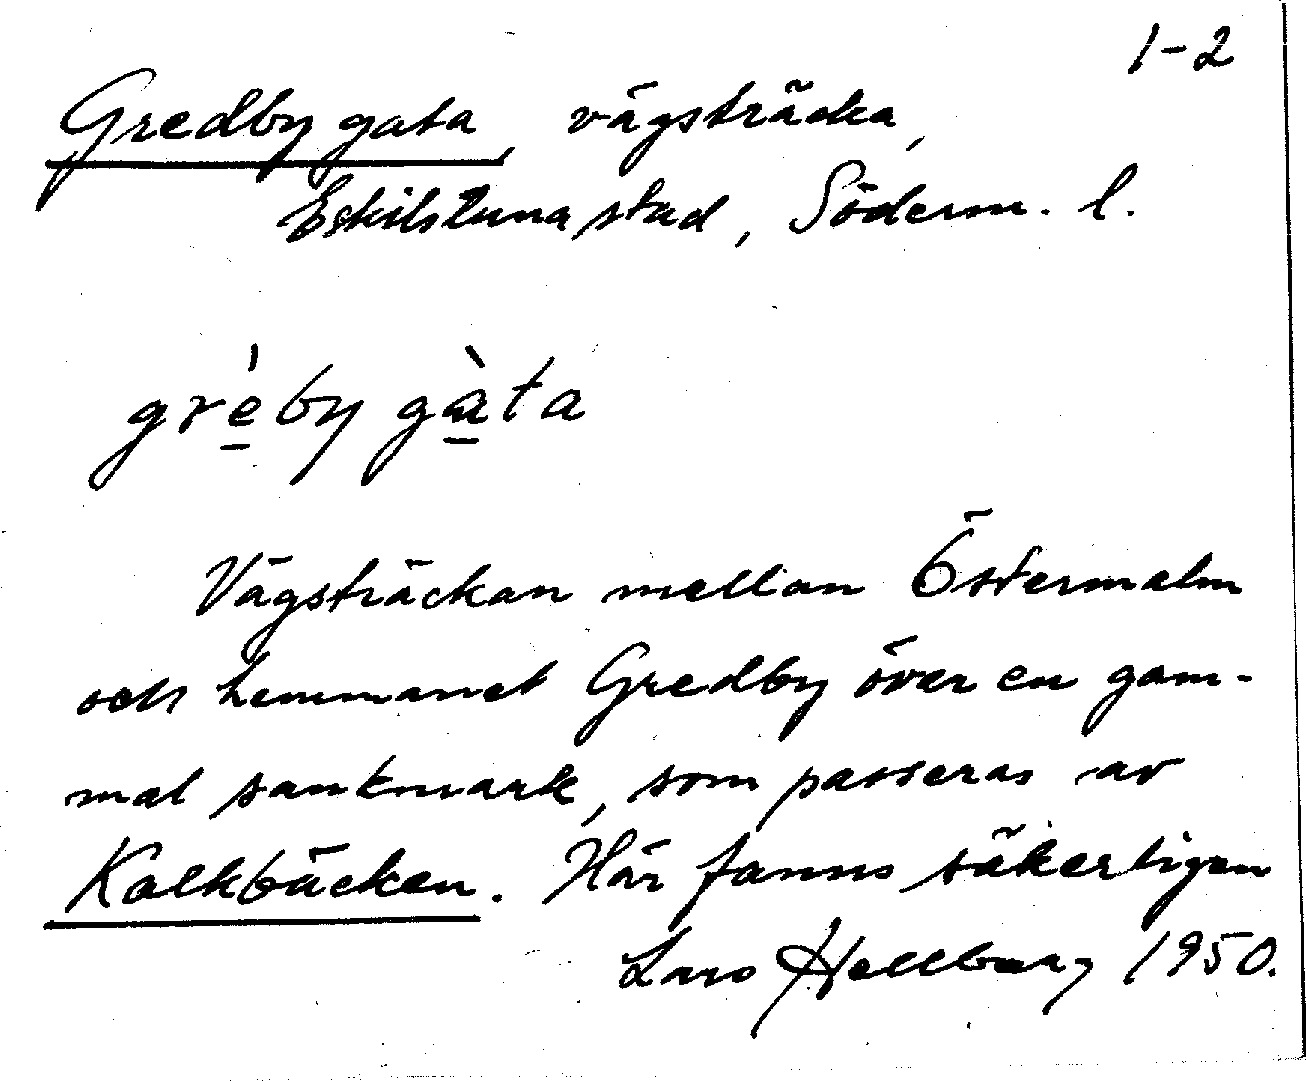 1-2
Gredby gata, vägsträcka,
Eskilstuna stad, Söderm. l.
grèby gàta
Vägsträckan mellan Östermalm
och hemmanet Gredby över en gam-
mal sankmark, som passeras av
Kalkbäcken. Här fanns säkerligen
Lars Hellberg 1950.